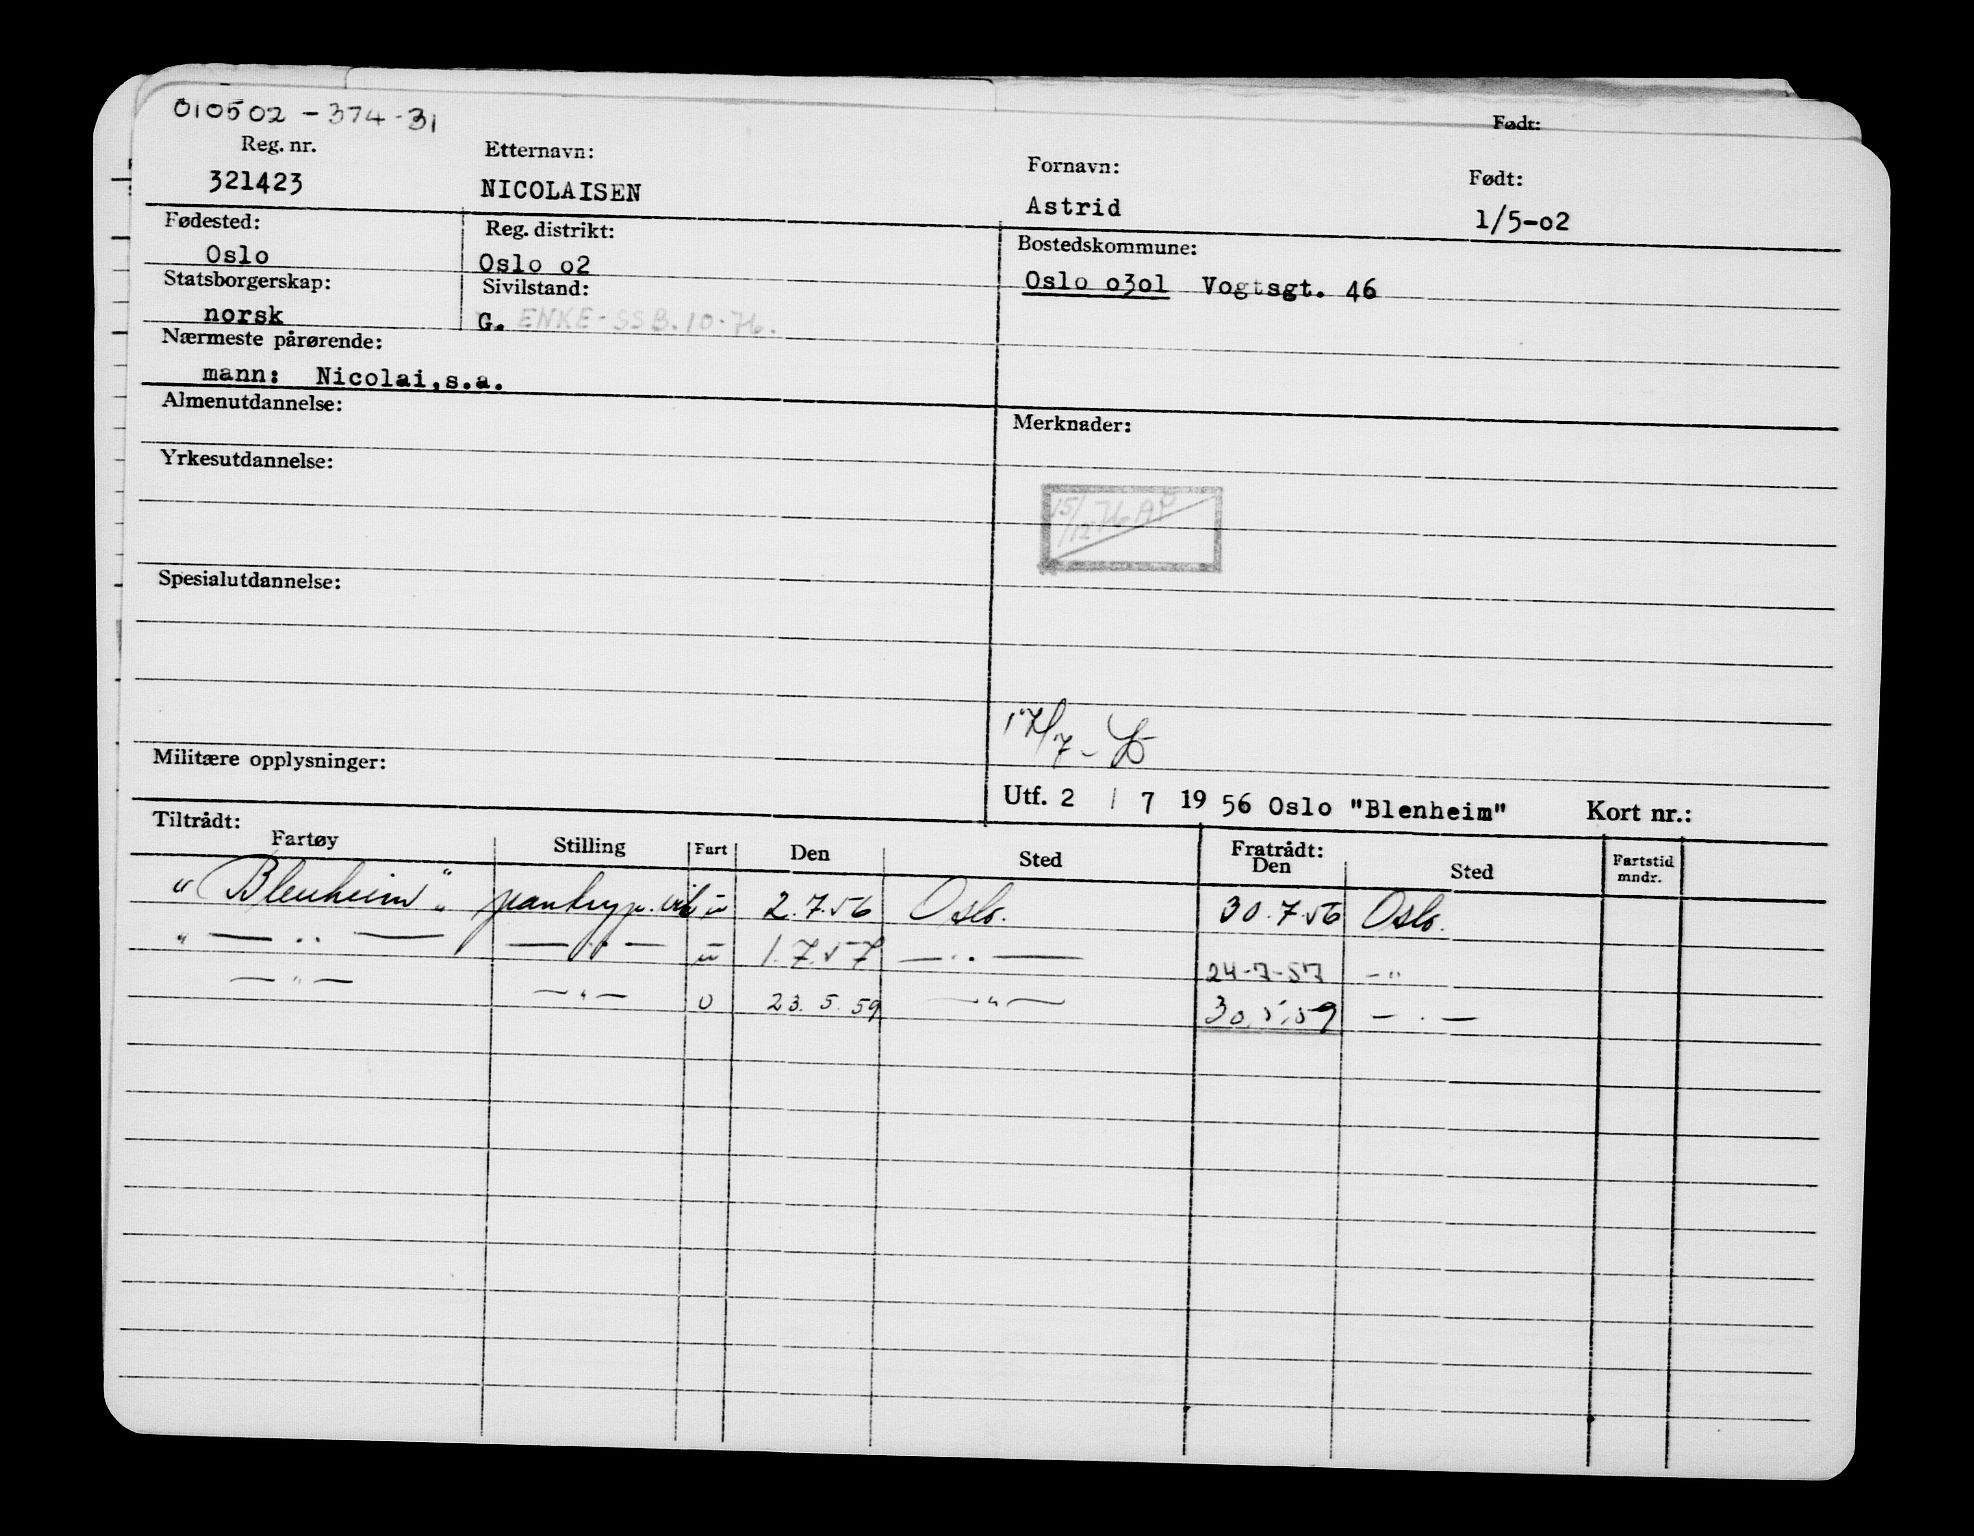 010502 - 374 - 31
Født:
Reg. nr. Etternavn: Fornavn: Født:
321423 NICOLAISEN Astrid 1/5-o2
Fødested: Reg. distrikt: Bostedskommune:
Oslo Oslo o2 Oslo o3o1 Vogtsgt. 46
Statsborgerskap: Sivilstand:
norsk G. ENKE-SSB.10-76.
Nærmeste pårørende:
mann: Nicolai,s.a.
Almenutdannelse: Merknader:
Yrkesutdannelse:
15/12 76
Spesialutdannelse:
17/7 -
Militære opplysninger:
Utf. 2 / 7 19 56 Oslo "Blenheim" Kort nr.:
Tiltrådt: Fratrådt:
Fartøy Stilling Fart Den Sted Den Sted Fartstid mndr.
"Blenheim" u 2.7.56 Oslo. 30.7.56 Oslo.
" — .. — — .. — u 1.7.57 — .. — 24-7-57 - "
— " — — " — U 23.5.59 — " — 30.5.59 — . —